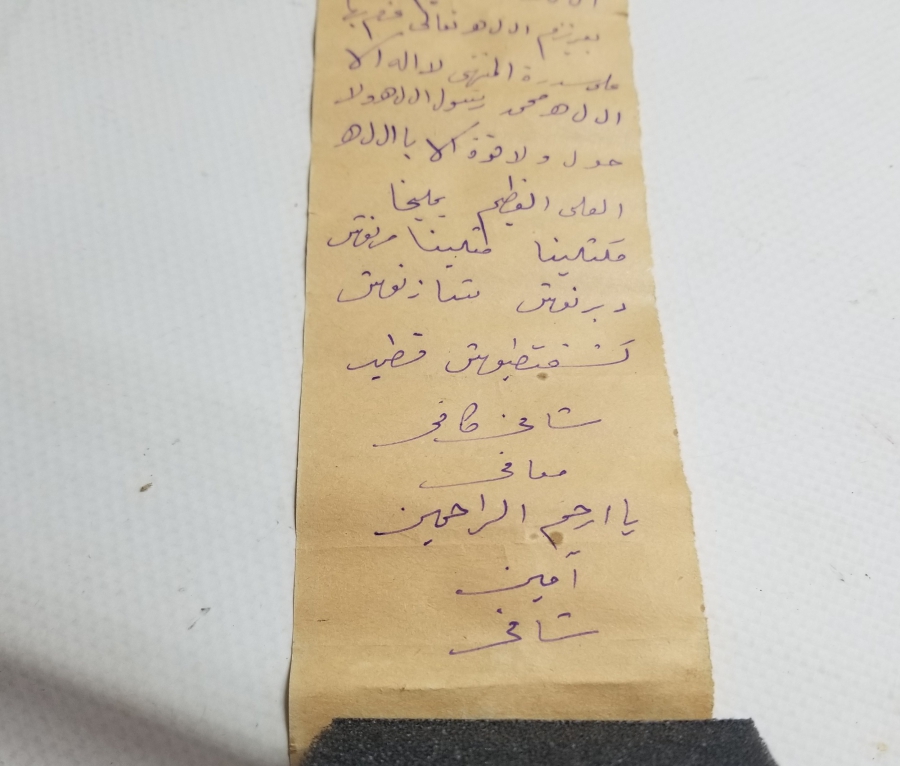 بعزيزم ال ل ه تعالى
على سدرة المنتهى لا اله الا
ال ل ه محمد رسول ال ل ه ولا
حول ولا قوة الا باال ل ه
العلى العظيم يمليخا
مكثلينا مثلينا مرنوش
دبرنوش شاذنوش
كشفتطيوش قطمير
شافى كافى
معافى
يا ارحم الراحمين
آمين
شافى